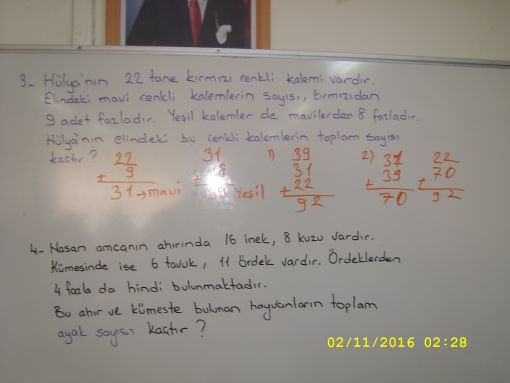 3- Hülya'nın 22 tane kırmızı renkli kalemi vardır.
Elindeki mavi renkli kalemlerin sayısı, kırmızıdan
9 adet fazladır. Yeşil kalemler de mavilerden 8 fazladır.
Hülya'nın elindeki bu renkli kalemlerin toplam sayısı
kaçtır?
22
+ 9
31 → mavi
31
+ 8
39 Yeşil
1) 39
31
+ 22
92
2) 31
39
+
70
22
70
+
92
4- Hasan amcanın ahırında 16 inek, 8 kuzu vardır.
Kümesinde ise 6 tavuk, 11 ördek vardır. Ördeklerden
4 fazla da hindi bulunmaktadır.
Bu ahır ve kümeste bulunan hayvanların toplam
ayak sayısı kaçtır?
02/11/2016 02:28